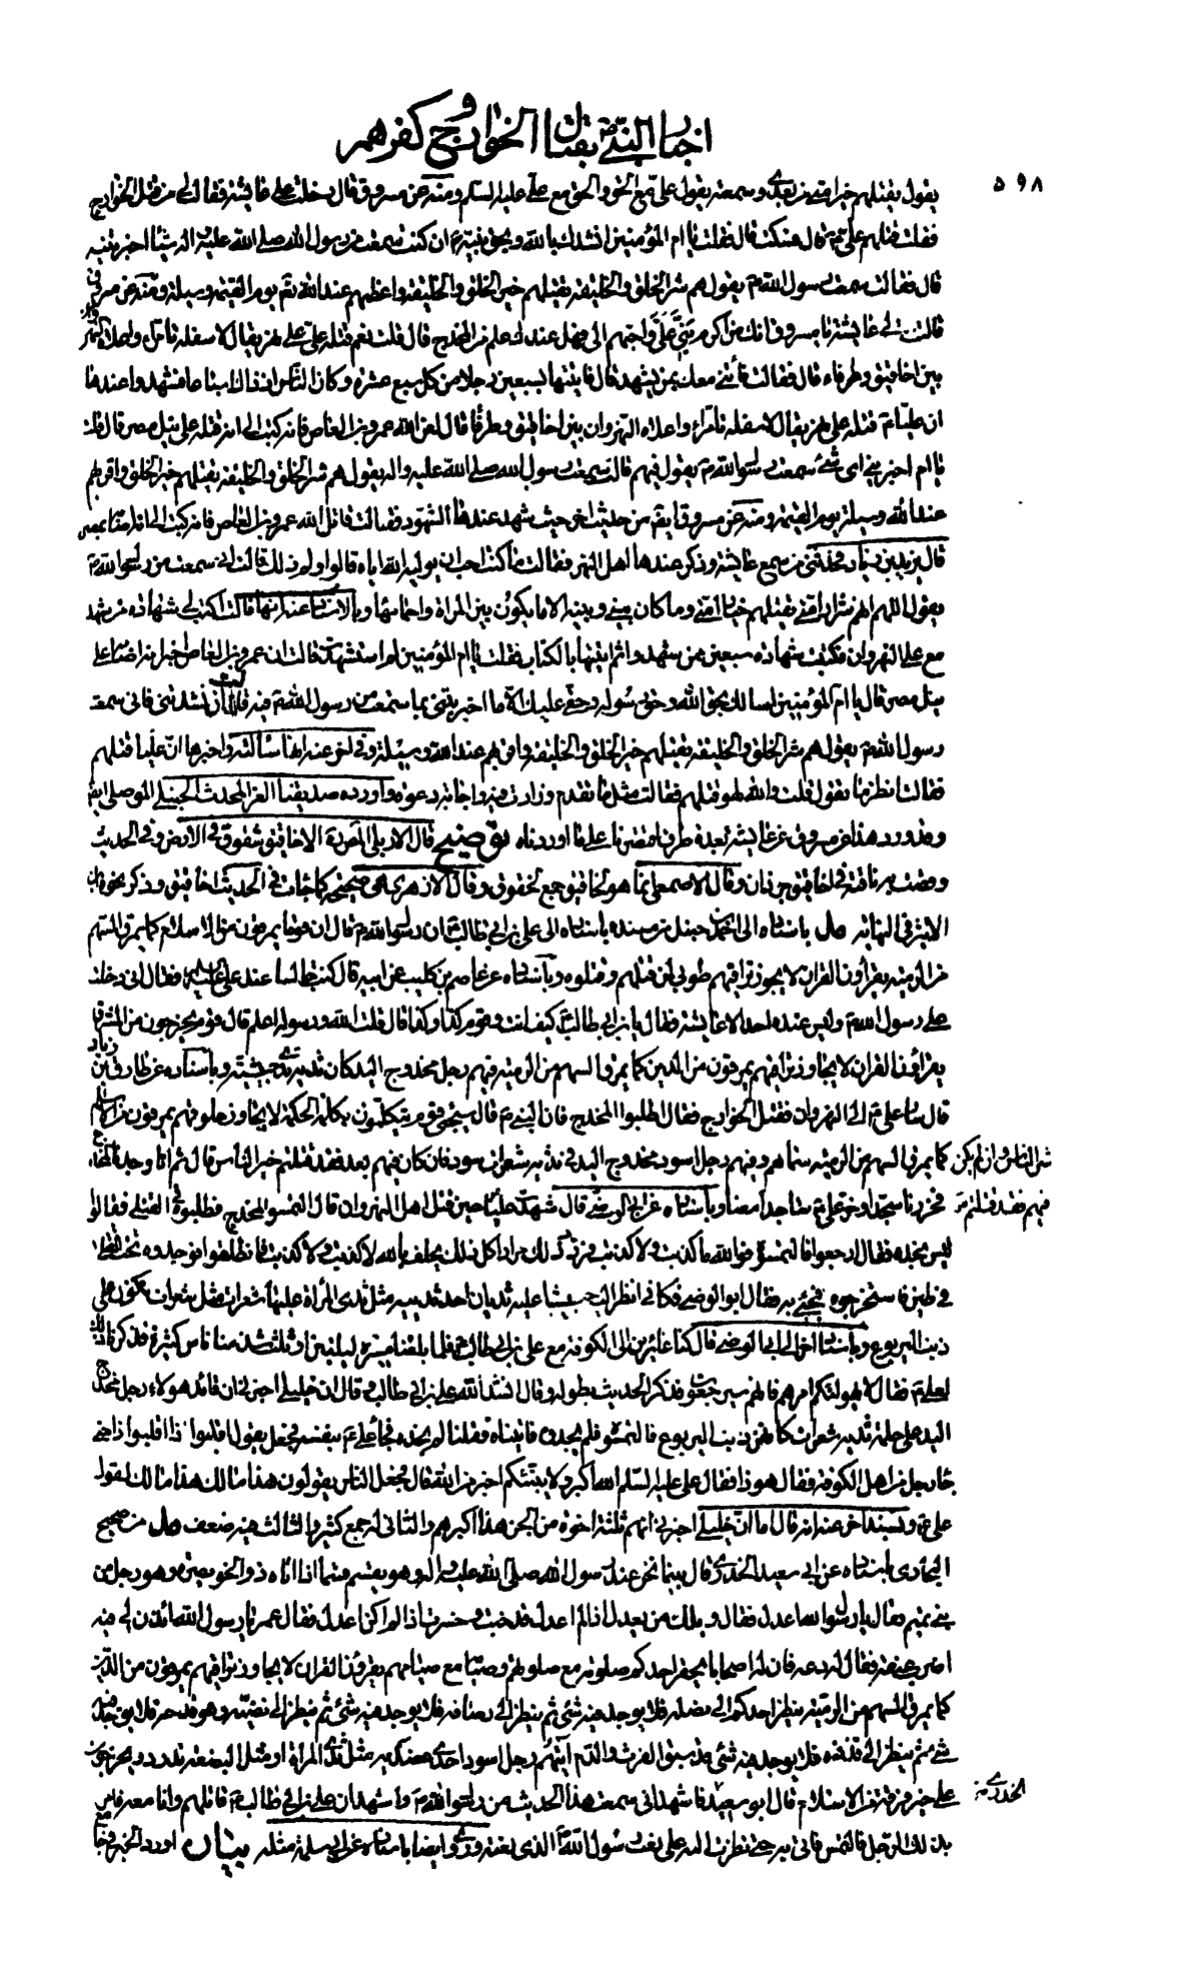 ٥٩٨
اخبار النبي ص بقتال الخوارج و كفرهم
يقول يقتلهم خير امتي من بعدي وسمعته يقول علي مع الحق والحق مع علي عليه السلام ومنه عن مسروق قال دخلت على عايشة فقالت لي من قتل الخوارج
فقلت قتلهم علي قال فسكتت قال فقلت يا ام المؤمنين انشدك بالله وبحق نبيه ص ان كنت سمعت من رسول الله صلى الله عليه واله شيئا اخبرتنيه
قال فقالت سمعت رسول الله ص يقول هم شر الخلق والخليقة يقتلهم خير الخلق والخليقة واعظمهم عند الله تع يوم القيمة وسيلة ومنه عن مسروق
قالت لي عايشة يا مسروق انك من اكرم بني علي واحبهم الي فهل عندك علم من المخدج قال قلت نعم قتله علي على نهر يقال لاسفله تامرا ولاعلاه النهروان
بين اخاقيق وطرفاء قال فقالت فأتني معك بمن يشهد قال فاتيتها بسبعين رجلا من كل سبع عشرة وكان الناس اذ ذاك اسباعا فشهدوا عندها
ان عليا ع قتله على نهر يقال لاسفله تامرا ولاعلاه النهروان بين اخاقيق وطرفا قال لعن الله عمرو بن العاص فانه كتب الي انه قتله على نيل مصر قال قلت
يا ام اخبريني اي شئ سمعت رسول الله ص يقول فيهم قالت سمعت رسول الله صلى الله عليه واله يقول هم شر الخلق والخليقة يقتلهم خير الخلق واقربهم
عند الله وسيلة يوم القيمة ومنه عن مسروق ايضا من حديث اخر حيث شهد عندها الشهود فقالت قاتل الله عمرو بن العاص فانه كتب الي انه اصابه بمصر
قال يزيد بن زياد فحدثني من سمع عايشة وذكر عندها اهل النهر فقالت ما كنت احب ان يوليه الله اياه قالوا ولم ذلك قالت اني سمعت من رسول الله ص
يقول اللهم انهم شرار امتي يقتلهم خيار امتي وما كان بيني وبينه الا ما يكون بين المراة واحمائها وبالاسناد عنه انها قالت اكتب لي شهادة من شهد
مع علي النهروان فكتبت شهادة سبعين ممن شهد ثم اتيتها بالكتاب فقلت يا ام المؤمنين لم استشهدت قالت ان عمرو بن العاص اخبرني انه اصابه على
نيل مصر قال يا ام المؤمنين اسالك بحق الله وحق رسوله وحقي عليك الا ما اخبرتني بما سمعت من رسول الله ص فيه قالت ان نشدتني فاني سمعت
رسول الله ص يقول هم شر الخلق والخليقة يقتلهم خير الخلق والخليقة واقربهم عند الله وسيلة وفي اخر عنه انها سالته واخبرها ان عليا قتلهم
فقالت انظر ما تقول قلت والله لهو قتلهم فقالت مثل ما تقدم وزادت فيه واجابة دعوة واورده صديقنا العز المحدث الحنبلي الموصلي ايضا
وقد ورد هذا عن مسروق عن عايشة بعدة طرق اقتصرنا على ما اوردناه توضيح قال الاربلي الاخاقيق شقوق في الارض وفي الحديث
وقصت به ناقته في اخاقيق جرذان وقال الاصمعي انما هو لخاقيق جمع لخقوق وقال الازهري هي صحيحة كما جاءت في الحديث اخاقيق وذكر نحوه ابن
الاثير في النهاية باسناده الى احمد بن حنبل من مسنده باسناده الى علي بن ابي طالب ان رسول الله ص قال ان قوما يمرقون من الاسلام كما يمرق السهم
من الرمية يقرأون القران لا يجوز تراقيهم طوبى لمن قتلهم وقتلوه وباسناده عن عاصم بن كليب عن ابيه قال كنت جالسا عند علي ع فقال اني دخلت
على رسول الله ص وليس عنده احد الا عايشة فقال يا بن ابي طالب كيف انت وقوم كذا وكذا قال قلت الله ورسوله اعلم قال قوم يخرجون من المشرق
يقراون القران لا يجاوز تراقيهم يمرقون من الدين كما يمرق السهم من الرمية فيهم رجل مخدوج اليد كان يديه ثدي حبشية وباسناده عن طارق بن زياد
قال سار علي ع الى النهروان فقتل الخوارج فقال اطلبوا المخدج فان النبي ص قال سيجئ قوم يتكلمون بكلمة الحكمة لا يجاوز حلوقهم يمرقون من الاسلام
كما يمرق السهم من الرمية سيماهم او فيهم رجل اسود مخدوج اليد في يديه شعرات سود فان كان فيهم فقد قتلتم شر الناس وان لم يكن فيهم فقد قتلتم خير الناس قال ثم انا وجدنا المخدج
فخررنا سجدا وخر علي ع ساجدا معنا وباسناده عن ابي الوضئ قال شهدت عليا حين قتل اهل النهروان قال التمسوا المخدج فطلبوه في القتلى فقالوا
ليس نجده فقال ارجعوا فالتمسوه فوالله ما كذبت ولا كذبت فردد ذلك مرارا كل ذلك يحلف بالله لا كذبت ولا كذبت فانطلقوا فوجدوه تحت القتلى
في طين فاستخرجوه فجئ به فقال ابو الوضئ فكاني انظر اليه حبشيا عليه ثديان احد ثدييه مثل ثدي المرأة عليها شعرات مثل شعرات تكون على
ذنب اليربوع وباسناد اخر الى ابي الوضئ قال كنا عائرين الى الكوفة مع علي بن ابي طالب ع فلما بلغنا مسيرة ليلتين او ثلث شذ منا ناس كثيرة فذكرنا ذلك
لعلي ع فقال لا يهولنكم امرهم فانهم سيرجعون فذكر الحديث بطوله وقال انشد الله علي بن ابي طالب وقال ان خليلي اخبرني ان قائد هؤلاء رجل مخدج
اليد على حلمة ثديه شعرات كانهن ذنب اليربوع فالتمسوه فلم يجدوه فاتيناه فقلنا لم نجده فجاء علي ع بنفسه فجعل يقول اقلبوا ذا اقلبوا ذا حتى
جاء رجل من اهل الكوفة فقال هو ذا فقال علي عليه السلام الله اكبر ولا ينبئكم اخبر من الله فقال فجعل الناس يقولون هذا مالك هذا مالك لقول
علي ع وبسند اخر عنه انه قال اما ان خليلي اخبرني انهم ثلثة اخوة من الجن هذا اكبرهم والثاني له جمع كثير والثالث فيه ضعف من صحيح
البخاري باسناده عن ابي سعيد الخدري قال بينما نحن عند رسول الله صلى الله عليه واله وهو يقسم قسما اذ اتاه ذو الخويصرة وهو رجل من
بني تميم فقال يا رسول الله اعدل فقال ويلك من يعدل اذا لم اعدل قد خبت وخسرت اذا لم اكن اعدل فقال عمر يا رسول الله ائذن لي فيه
اضرب عنقه فقال له دعه فان له اصحابا يحقر احدكم صلوته مع صلوتهم وصيامه مع صيامهم يقرءون القران لا يجاوز تراقيهم يمرقون من الدين
كما يمرق السهم من الرمية ينظر احدكم الى نصله فلا يوجد فيه شئ ثم ينظر الى رصافه فلا يوجد فيه شئ ثم ينظر الى نضيه وهو قدحه فلا يوجد فيه
شئ ثم ينظر الى قذذه فلا يوجد فيه شئ قد سبق الفرث والدم آيتهم رجل اسود احدى عضديه مثل ثدي المراة او مثل البضعة تدردر ويخرجون
على خير فرقة من الاسلام قال ابو سعيد الخدري فاشهد اني سمعت هذا الحديث من رسول الله ص واشهد ان علي بن ابي طالب ع قاتلهم وانا معه فامر
بذلك الرجل فالتمس فاتي به حتى نظرت اليه على نعت رسول الله ص الذي نعته وروي ايضا باسناده عن ابي سلمة مثله بيان اورد الخبر في جا